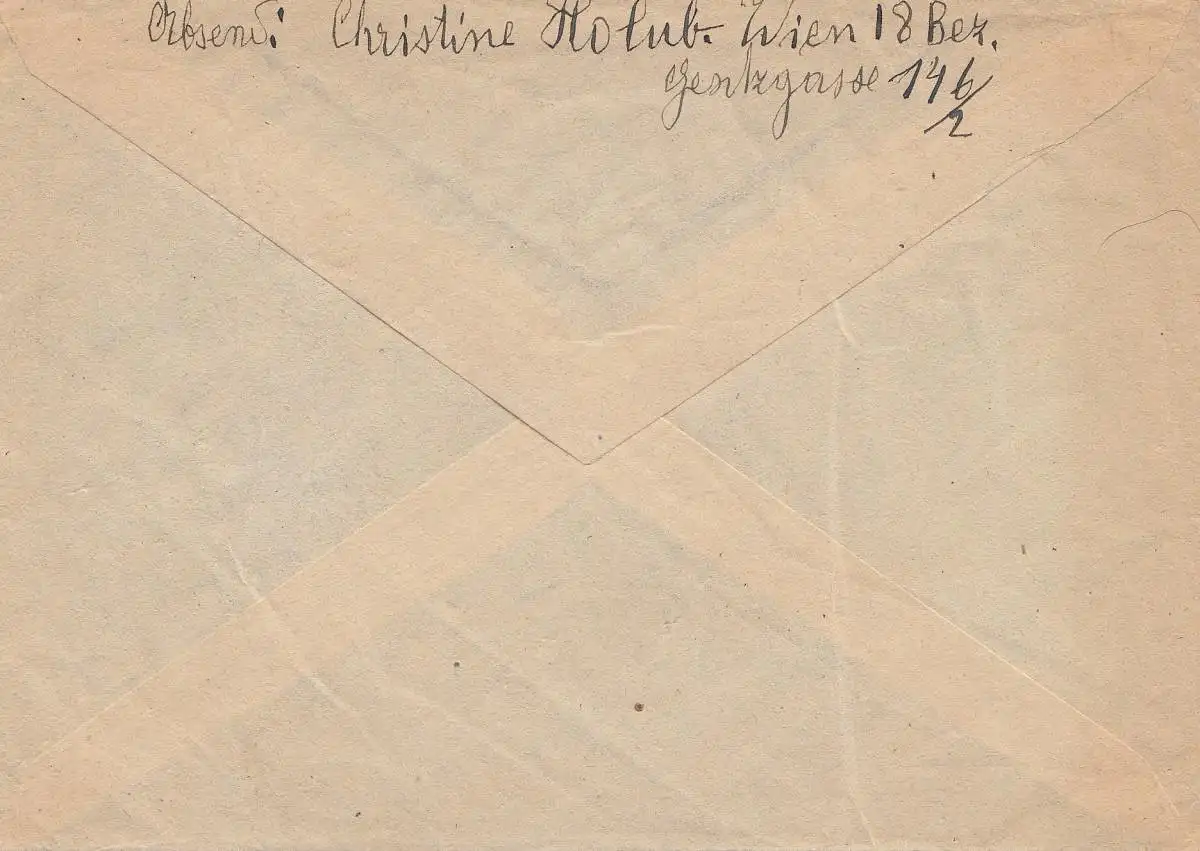 Absend: Christine Holub. Wien 18 Bez.
Gentzgasse 146/2